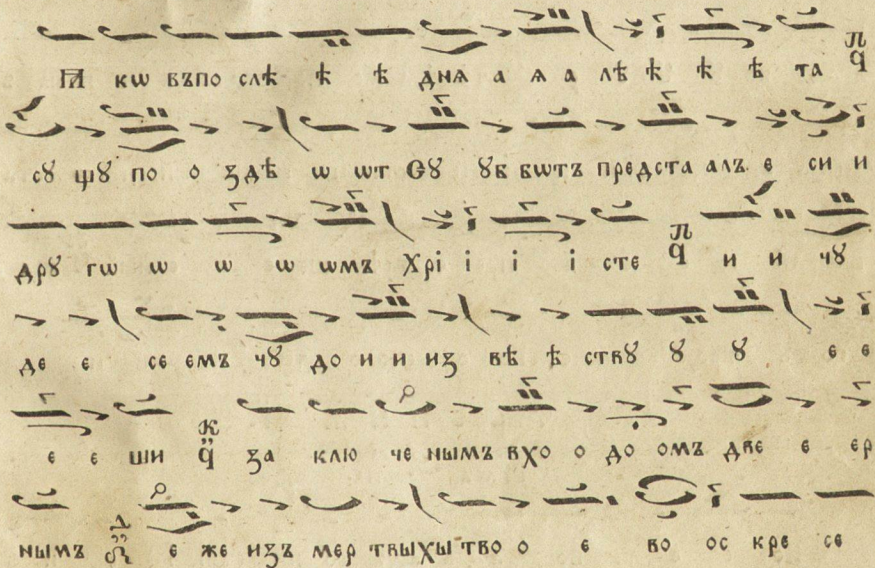 Ꙗ кѡ въпо слѣ ѣ ѣ днѧ а ѧ а лѣ ѣ ѣ ѣ та
сꙋ щꙋ по о здѣ ѡ ѡт Сꙋ ꙋб бѡтъ предста алъ е си и
дрꙋ гѡ ѡ ѡ ѡ ѡмъ Хрі і і і сте и и чꙋ
де е се емъ чꙋ до и и из вѣ ѣ ствꙋ ꙋ ꙋ е е
е е ши за клю че нымъ вхо о до омъ две е ер
нымъ е же изъ мер твыхъ тво о е во ос кре се